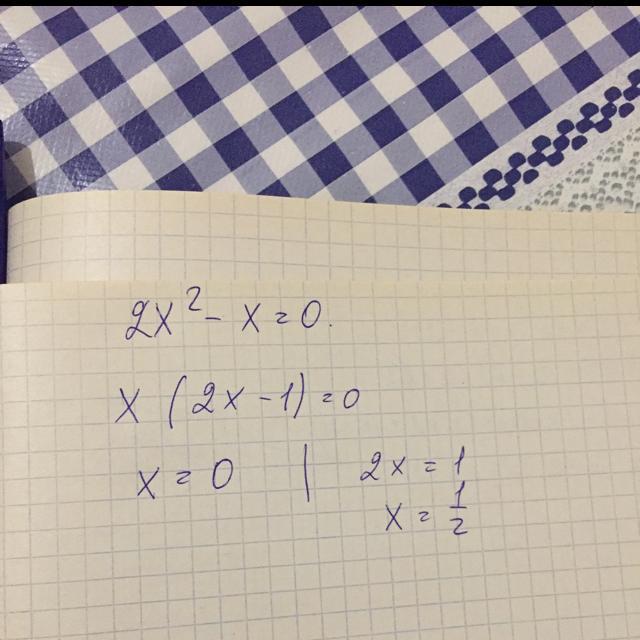 2x² - x = 0.
x (2x - 1) = 0
x = 0 | 2x = 1
x = 1/2